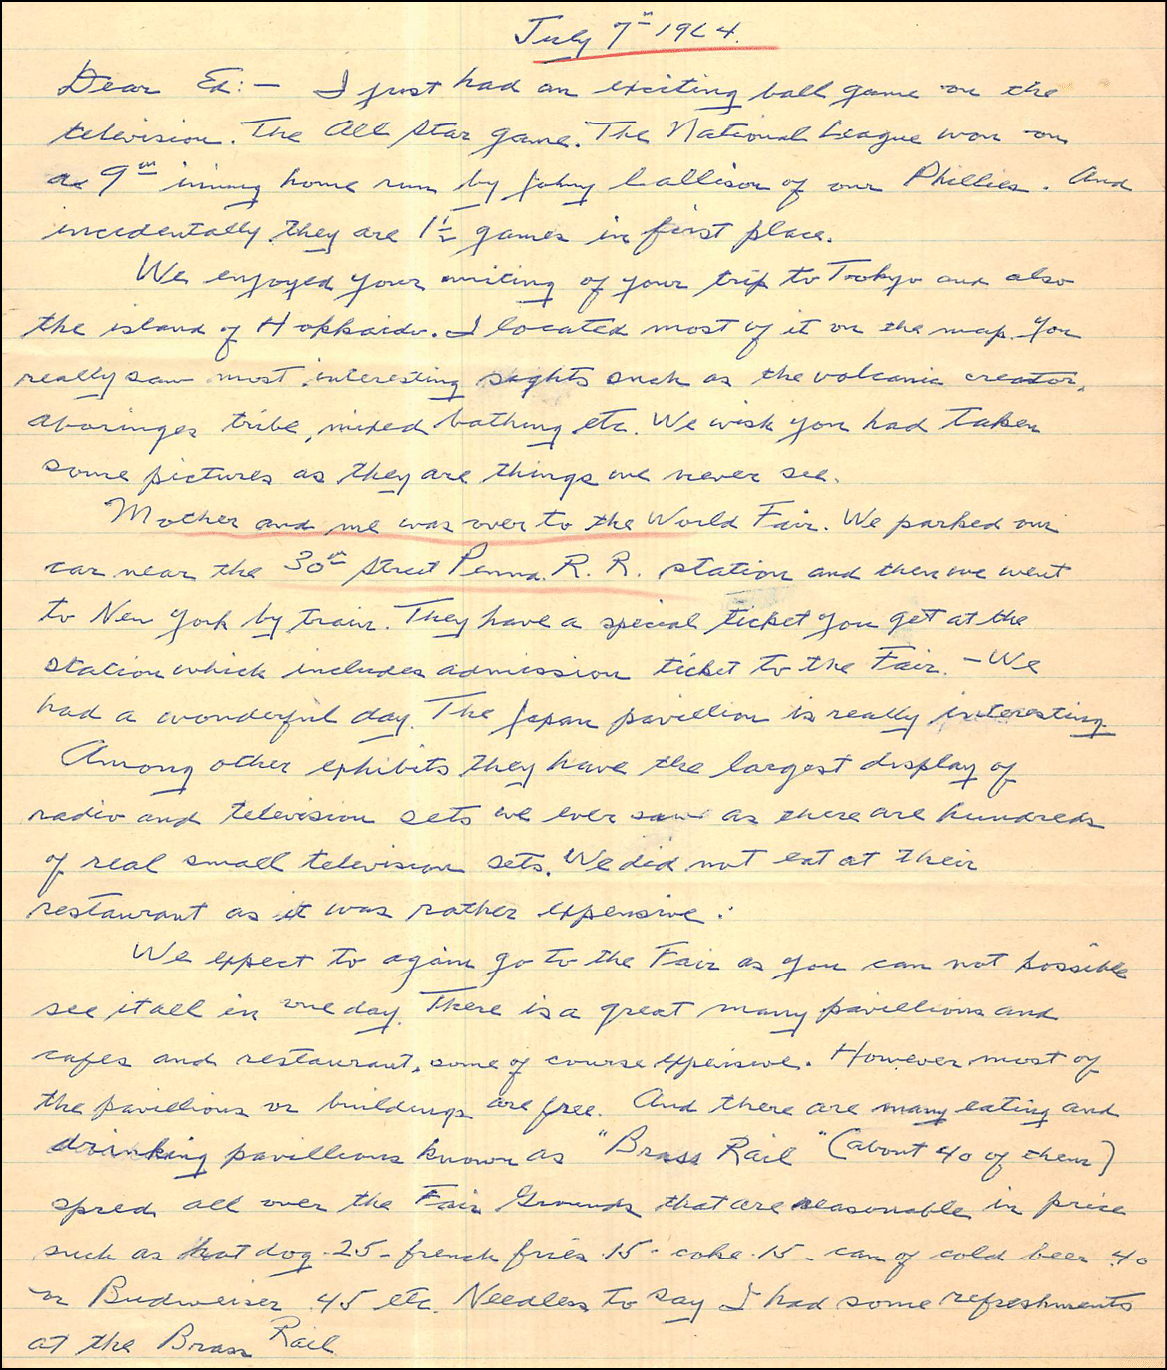 July 7th 1964.
Dear Ed:- I just had an exciting ball game on the
television. The All Star game. The National League won on
a 9th inning home run by Johny Callison of our Phillies. And
incidentally they are 1½ games in first place.
We enjoyed your writing of your trip to Tookyo and also
the island of Hokkaido. I located most of it on the map. You
really saw most interesting sights such as the volcanic creator,
aboringes tribe, mixed bathing etc. We wish you had taken
some pictures as they are things we never see.
Mother and me was over to the World Fair. We parked our
car near the 30th Street Penna. R. R. station and then we went
to New York by train. They have a special ticket you get at the
station which includes admission ticket to the Fair. - We
had a wonderful day. The Japan pavillion is really interesting
Among other exhibits they have the largest display of
radio and television sets we ever saw as there are hundreds
of real small television sets. We did not eat at their
restaurant as it was rather expensive.
We expect to again go to the Fair as you can not possible
see it all in one day. There is a great many pavillions and
cafes and restaurant, some of course expensive. However most of
the pavillions or buildings are free. And there are many eating and
drinking pavillions known as "Brass Rail" (about 40 of them)
spred all over the Fair Grounds that are reasonable in price
such as hot dog .25 - french fries .15 - coke .15 - can of cold beer .40
or Budweiser .45 etc. Needless to say I had some refreshments
at the Brass Rail